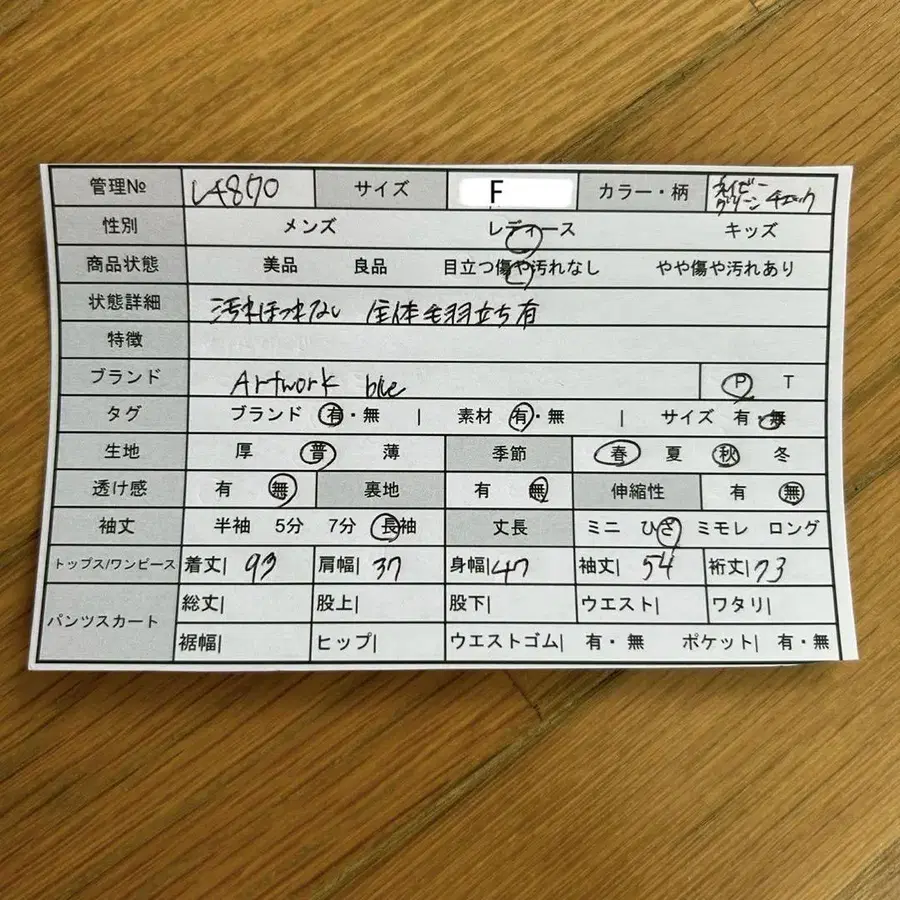 管理№ L4870 サイズ F カラー・柄 ネイビー グリーン チェック
性別 メンズ レディース キッズ
商品状態 美品 良品 目立つ傷や汚れなし やや傷や汚れあり
状態詳細 汚れほつれない 全体毛羽立ち有
特徴
ブランド Artwork blue P T
タグ ブランド 有・無 | 素材 有・無 | サイズ 有・無
生地 厚 普 薄 季節 春 夏 秋 冬
透け感 有 無 裏地 有 無 伸縮性 有 無
袖丈 半袖 5分 7分 長袖 丈長 ミニ ひざ ミモレ ロング
トップス/ワンピース 着丈| 93 肩幅| 37 身幅| 47 袖丈| 54 裄丈| 73
パンツスカート 総丈| 股上| 股下| ウエスト| ワタリ|
裾幅| ヒップ| ウエストゴム| 有・無 ポケット| 有・無